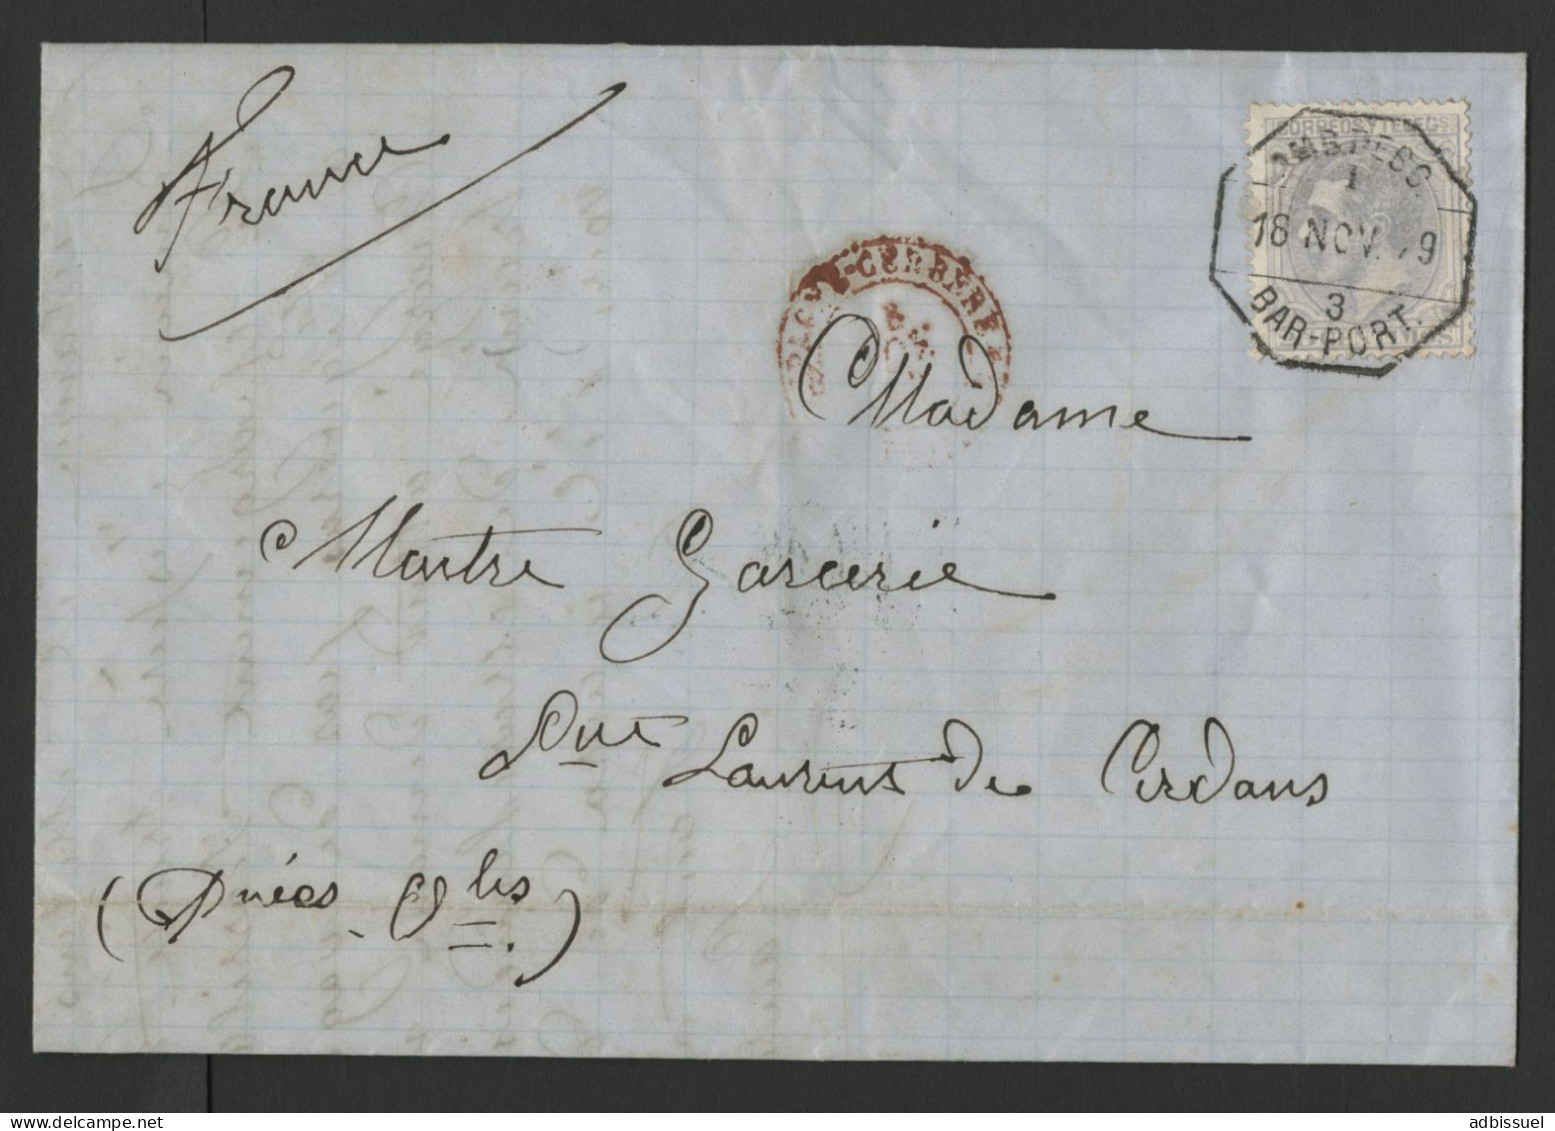 France
CORREOS Y TELEGS
AMB. DESC.
1
18 NOV. 79
3
BAR-PORT.
CERBERE
Madame
Maitre Garcerie
Laurent de Cerdans
(Pnées Oles)
adbissuel